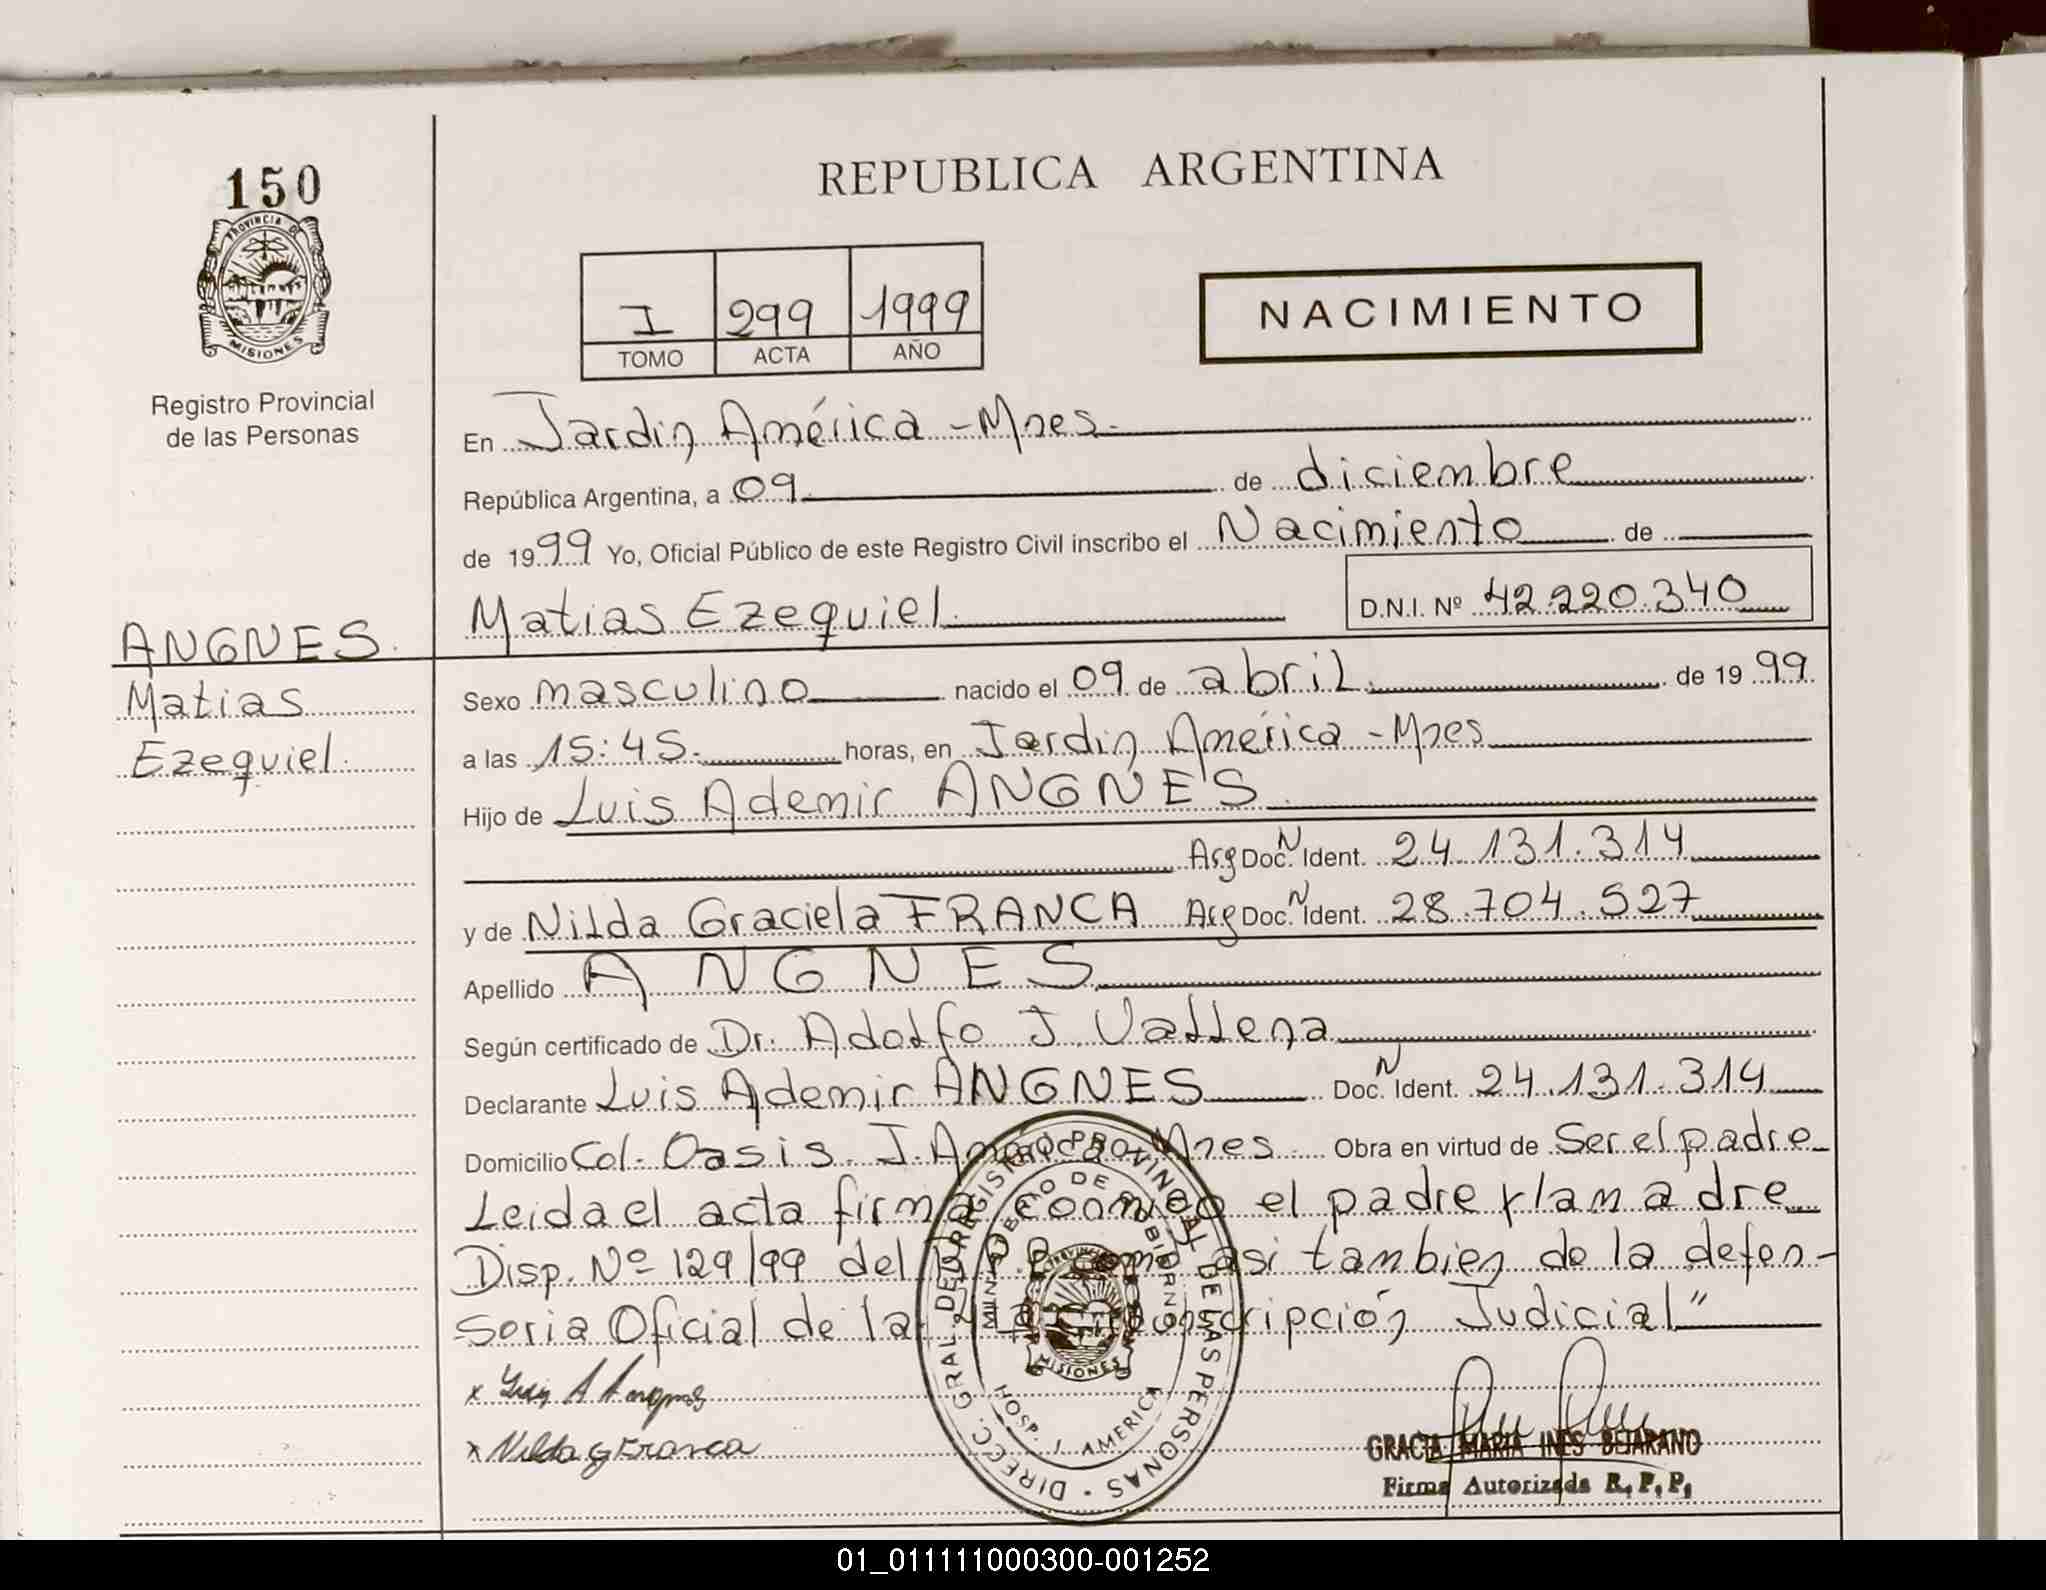 150
PROVINCIA DE
MISIONES
Registro Provincial
de las Personas
ANGNES.
Matias
Ezequiel.
REPUBLICA ARGENTINA
I 299 1999
TOMO ACTA AÑO
NACIMIENTO
En Jardin América - Mnes.
República Argentina, a 09 de diciembre
de 1999 Yo, Oficial Público de este Registro Civil inscribo el Nacimiento de
Matias Ezequiel. D.N.I. Nº 42.220.340
Sexo masculino nacido el 09 de abril. de 1999
a las 15:45. horas, en Jardin América - Mnes
Hijo de Luis Ademir ANGNES.
Arg Doc. N Ident. 24.131.314
y de Nilda Graciela FRANCA Arg Doc. N Ident. 28.704.527
Apellido ANGNES.
Según certificado de Dr. Adolfo J. Vallena
Declarante Luis Ademir ANGNES Doc. N Ident. 24.131.314
Domicilio Col. Oasis. J. América - Mnes Obra en virtud de Ser el padre
Leida el acta firma conmigo el padre y la madre
Disp. Nº 129/99 del como asi tambien de la defen-
soria Oficial de la Circonscripción Judicial"
x Luis A Angnes
x Nilda G Franca
DIRECC. GRAL DEL REGISTRO PROVINCIAL DE LAS PERSONAS
MINISTERIO DE GOBIERNO
PROVINCIA
MISIONES
HOSP. J. AMERICA
GRACIA MARIA INES BEJARANO
Firma Autorizada R.P.P.
01_011111000300-001252